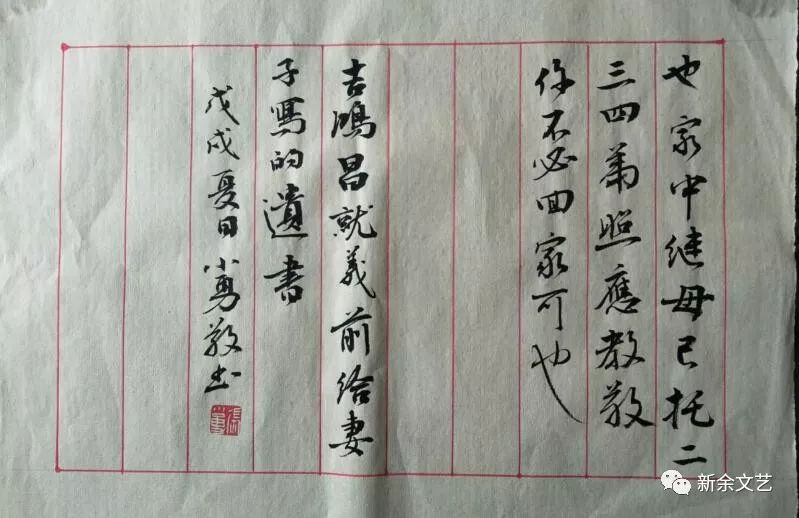 也家中继母已托二
三四弟照應教敬
你不必回家可也
吉鴻昌就義前给妻
子寫的遺書
戊戌夏日小勇敬书
新余文艺